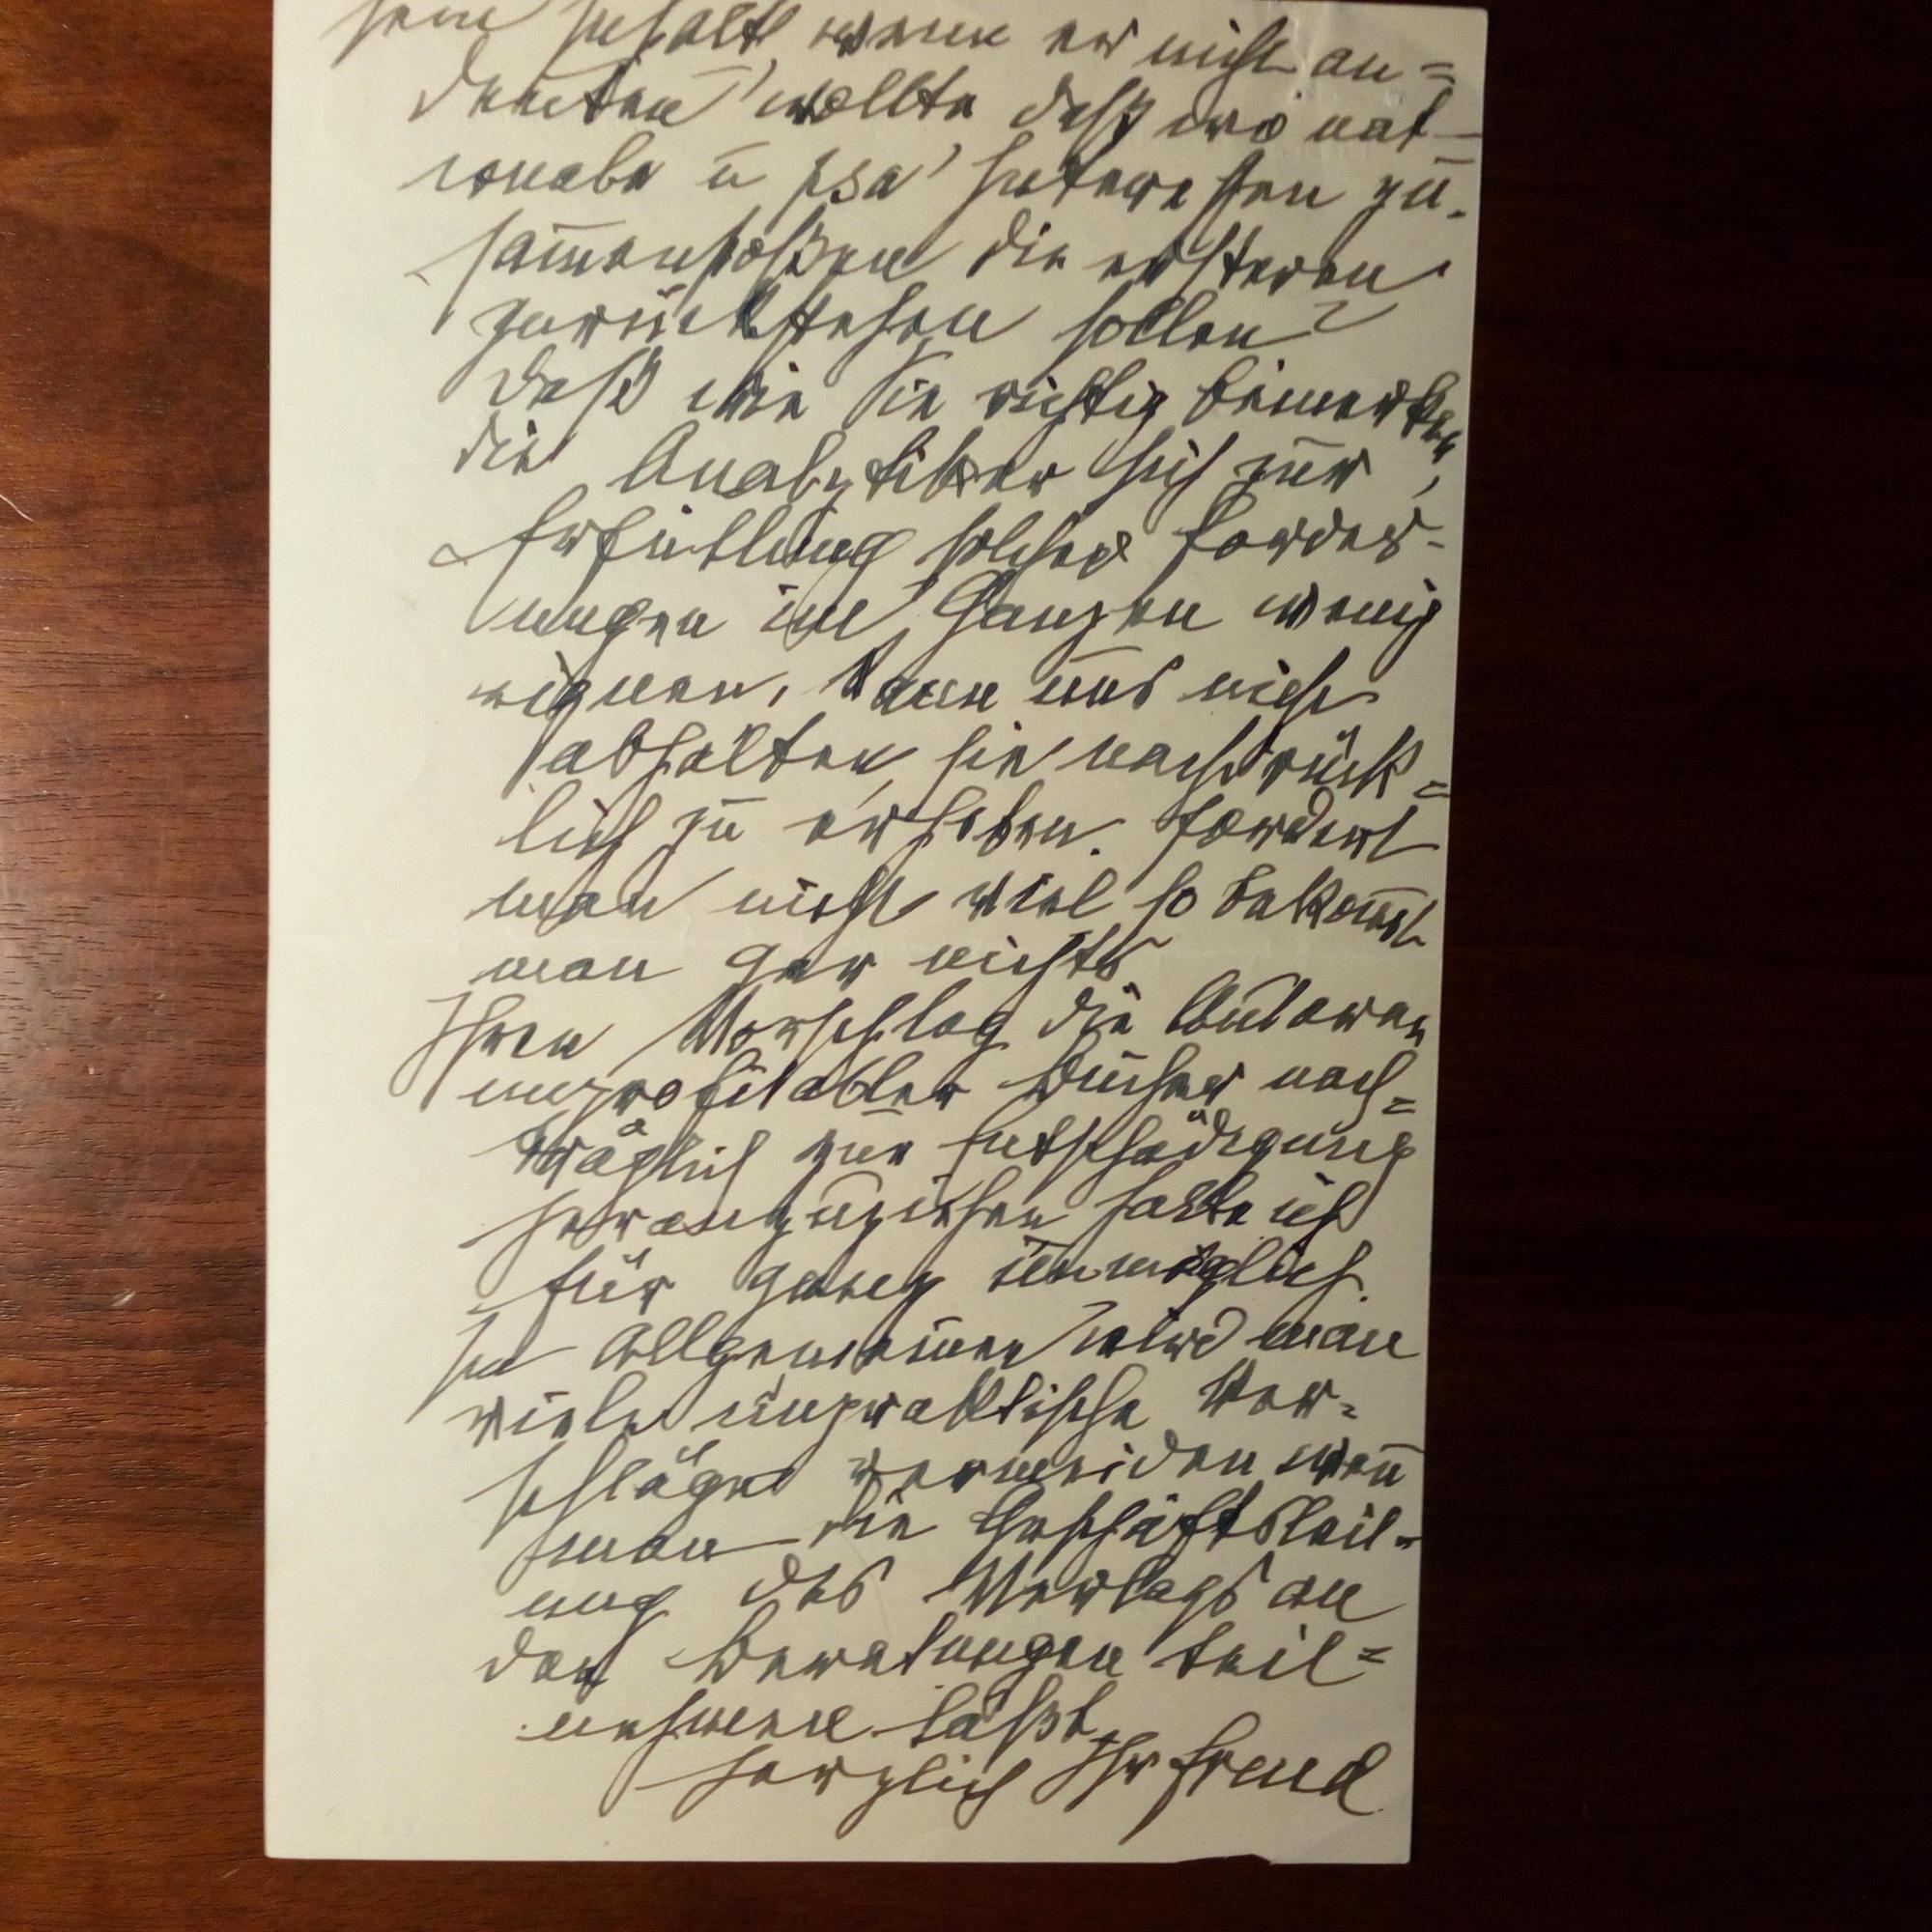 sein Inhalt, wenn er nicht an=
deuten wollte daß wo nat-
ionale u psa Interessen zu-
sammenstoßen die ersteren
zurückstehen sollen?
Daß wie Sie richtig bemerken,
die Analytiker sich zur
Erfüllung solcher Forder-
ungen im Ganzen wenig
eignen, kann uns nicht
abhalten, sie nachdrück=
lich zu erheben. Fordert
man nicht viel so bekom̅t
man gar nichts
Ihren Vorschlag die Autoren
unprofitabler Bücher nach=
träglich zur Entschädigung
heranzuziehen halte ich
für ganz unmöglich.
Im Allgemeinen wird man
viele unpraktische Vor=
schläge vermeiden wen̅
man die Geschäftsleit=
ung des Verlags an
den Beratungen teil=
nehmen läßt.
Herzlich Ihr Freud